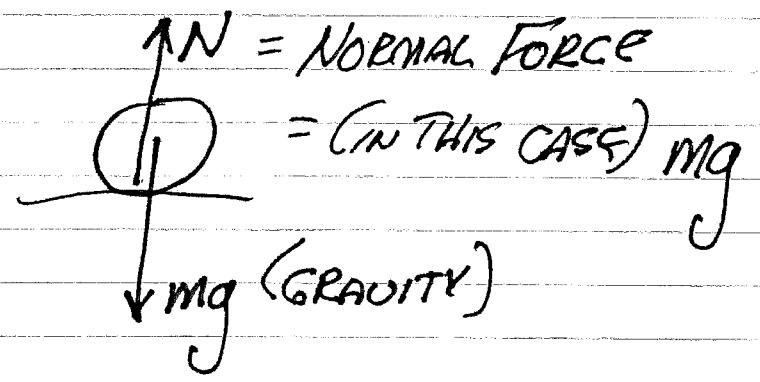 N = NORMAL FORCE
= (IN THIS CASE) mg
mg (GRAVITY)